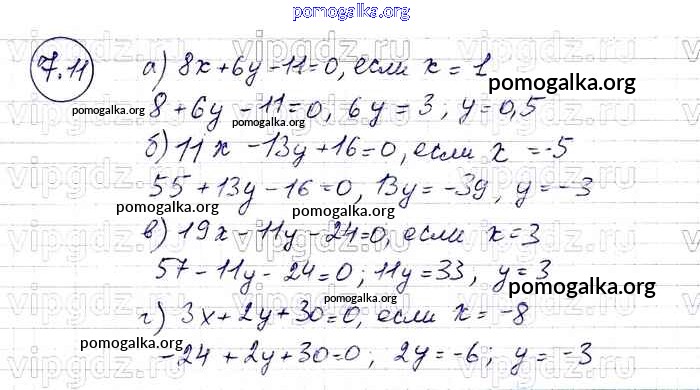 pomogalka.org
vipgdz.ru vipgdz.ru vipgdz.ru
7.11
а) 8x+6y-11=0, если x = 1
pomogalka.org
pomogalka.org
8+6y-11=0, 6y=3; y=0,5
pomogalka.org
б) 11x-13y+16=0, если x=-5
55+13y-16=0, 13y=-39, y=-3
pomogalka.org pomogalka.org
в) 19x-11y-24=0, если x=3
57-11y-24=0; 11y=33, y=3
pomogalka.org
pomogalka.org
г) 3x+2y+30=0, если x=-8
pomogalka.org
-24+2y+30=0; 2y=-6; y=-3
pomogalka.org